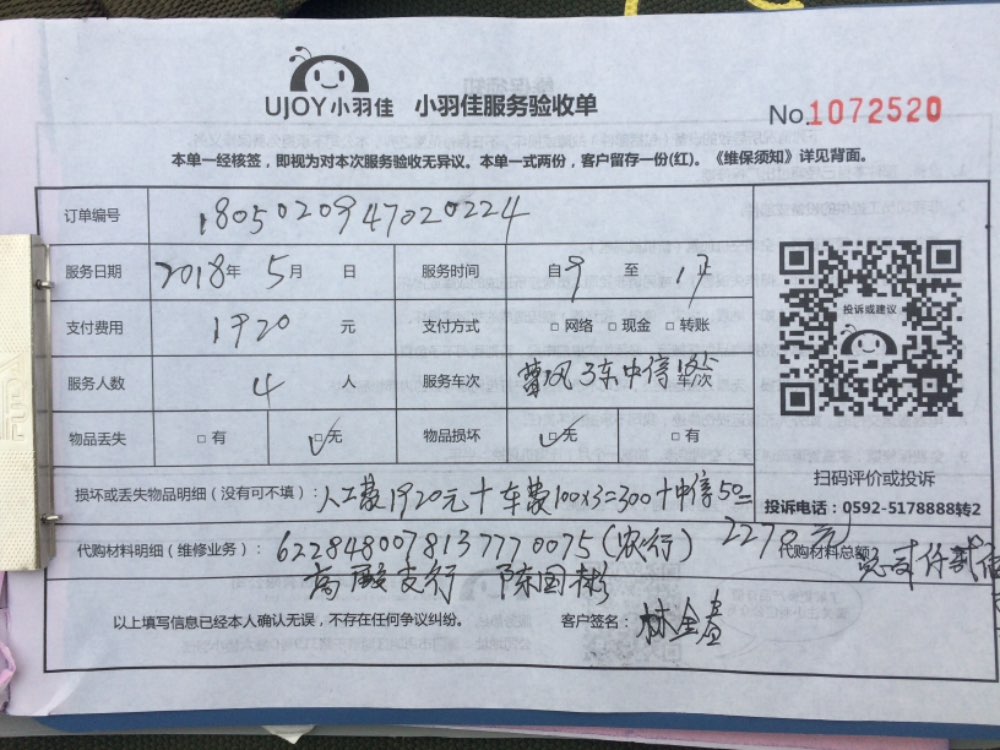 UJOY小羽佳 小羽佳服务验收单
No.1072520
本单一经核签，即视为对本次服务验收无异议。本单一式两份，客户留存一份(红)。《维保须知》详见背面。
订单编号 1805020947020224
服务日期 2018年 5月 日 服务时间 自9 至 17
支付费用 1920 元 支付方式 □网络 □现金 □转账
投诉或建议
服务人数 4 人 服务车次 3车中停 车次
物品丢失 □有 □无 物品损坏 □无 □有
扫码评价或投诉
损坏或丢失物品明细（没有可不填）：人工费1920元+车费100×3=300+中停50=
投诉电话：0592-5178888转2
代购材料明细（维修业务）：6228480078137770075(农行) 2270元
代购材料总额
支行 陈国彬
以上填写信息已经本人确认无误，不存在任何争议纠纷。 客户签名：林金春